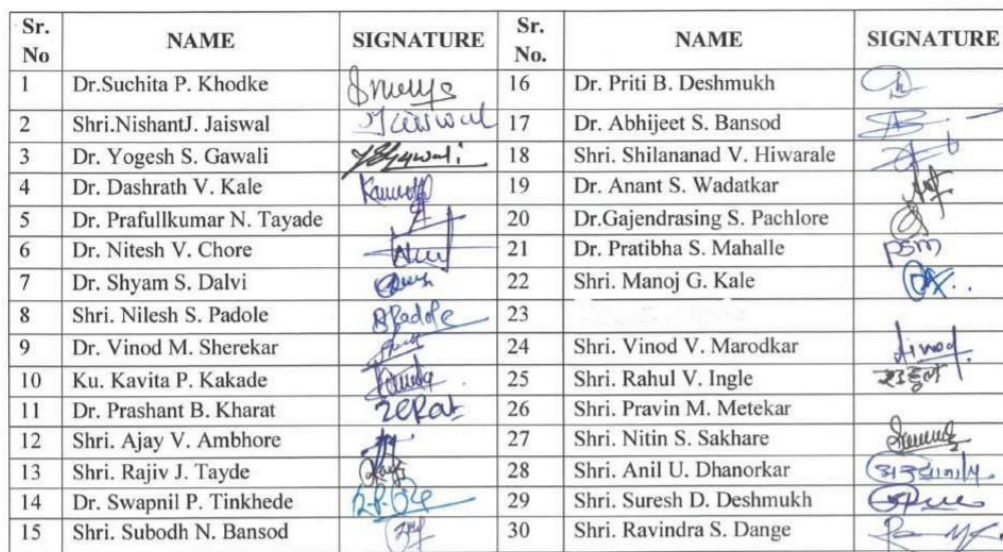 Sr. No NAME SIGNATURE Sr. No. NAME SIGNATURE
1 Dr.Suchita P. Khodke 16 Dr. Priti B. Deshmukh
2 Shri.NishantJ. Jaiswal Jaiswal 17 Dr. Abhijeet S. Bansod
3 Dr. Yogesh S. Gawali YSGawali 18 Shri. Shilananad V. Hiwarale
4 Dr. Dashrath V. Kale 19 Dr. Anant S. Wadatkar
5 Dr. Prafullkumar N. Tayade 20 Dr.Gajendrasing S. Pachlore
6 Dr. Nitesh V. Chore 21 Dr. Pratibha S. Mahalle PSM
7 Dr. Shyam S. Dalvi 22 Shri. Manoj G. Kale
8 Shri. Nilesh S. Padole Padole 23
9 Dr. Vinod M. Sherekar 24 Shri. Vinod V. Marodkar Vinod
10 Ku. Kavita P. Kakade 25 Shri. Rahul V. Ingle राहुल
11 Dr. Prashant B. Kharat 26 Shri. Pravin M. Metekar
12 Shri. Ajay V. Ambhore 27 Shri. Nitin S. Sakhare
13 Shri. Rajiv J. Tayde 28 Shri. Anil U. Dhanorkar
14 Dr. Swapnil P. Tinkhede 29 Shri. Suresh D. Deshmukh
15 Shri. Subodh N. Bansod 30 Shri. Ravindra S. Dange